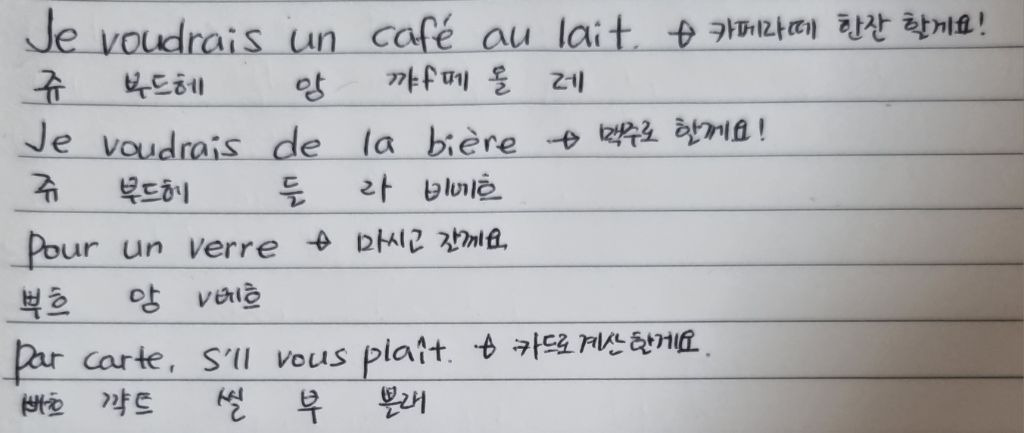 Je voudrais un café au lait. → 카페라떼 한잔 할게요!
쥬 부드헤 앙 꺄f페 올 레
Je voudrais de la bière → 맥주로 할께요!
쥬 부드헤 듣 라 비에흐
Pour un verre → 마시고 갈께요
뿌흐 앙 v베흐
Par carte, s'il vous plaît. → 카드로 계산할게요.
빠흐 꺅드 씰 부 쁠래